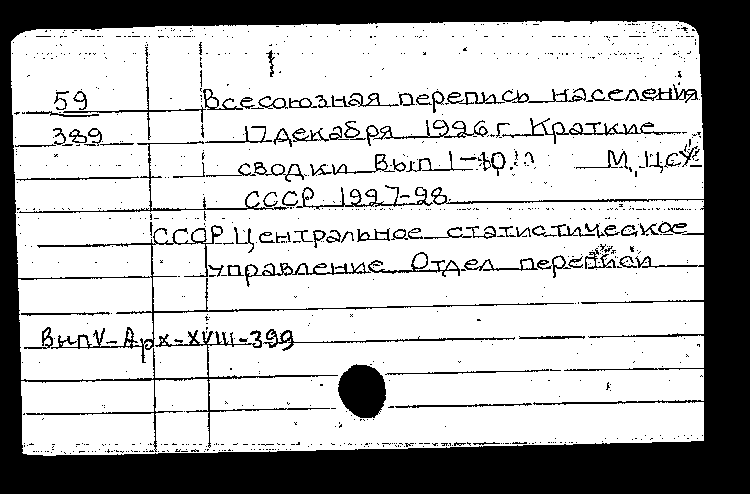 59 Всесоюзная перепись населения
389 17 декабря 1926 г. Краткие
сводки Вып 1-10. М, ЦСУ
СССР 1927-28
СССР Центральное статистическое
управление Отдел переписи
Вып V-Арх-XVIII-399